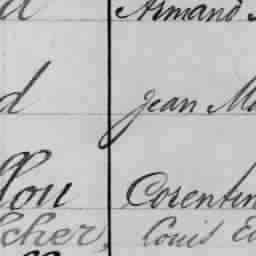 d Armand
d Jean Ma
llou Corentin
cher, Louis E